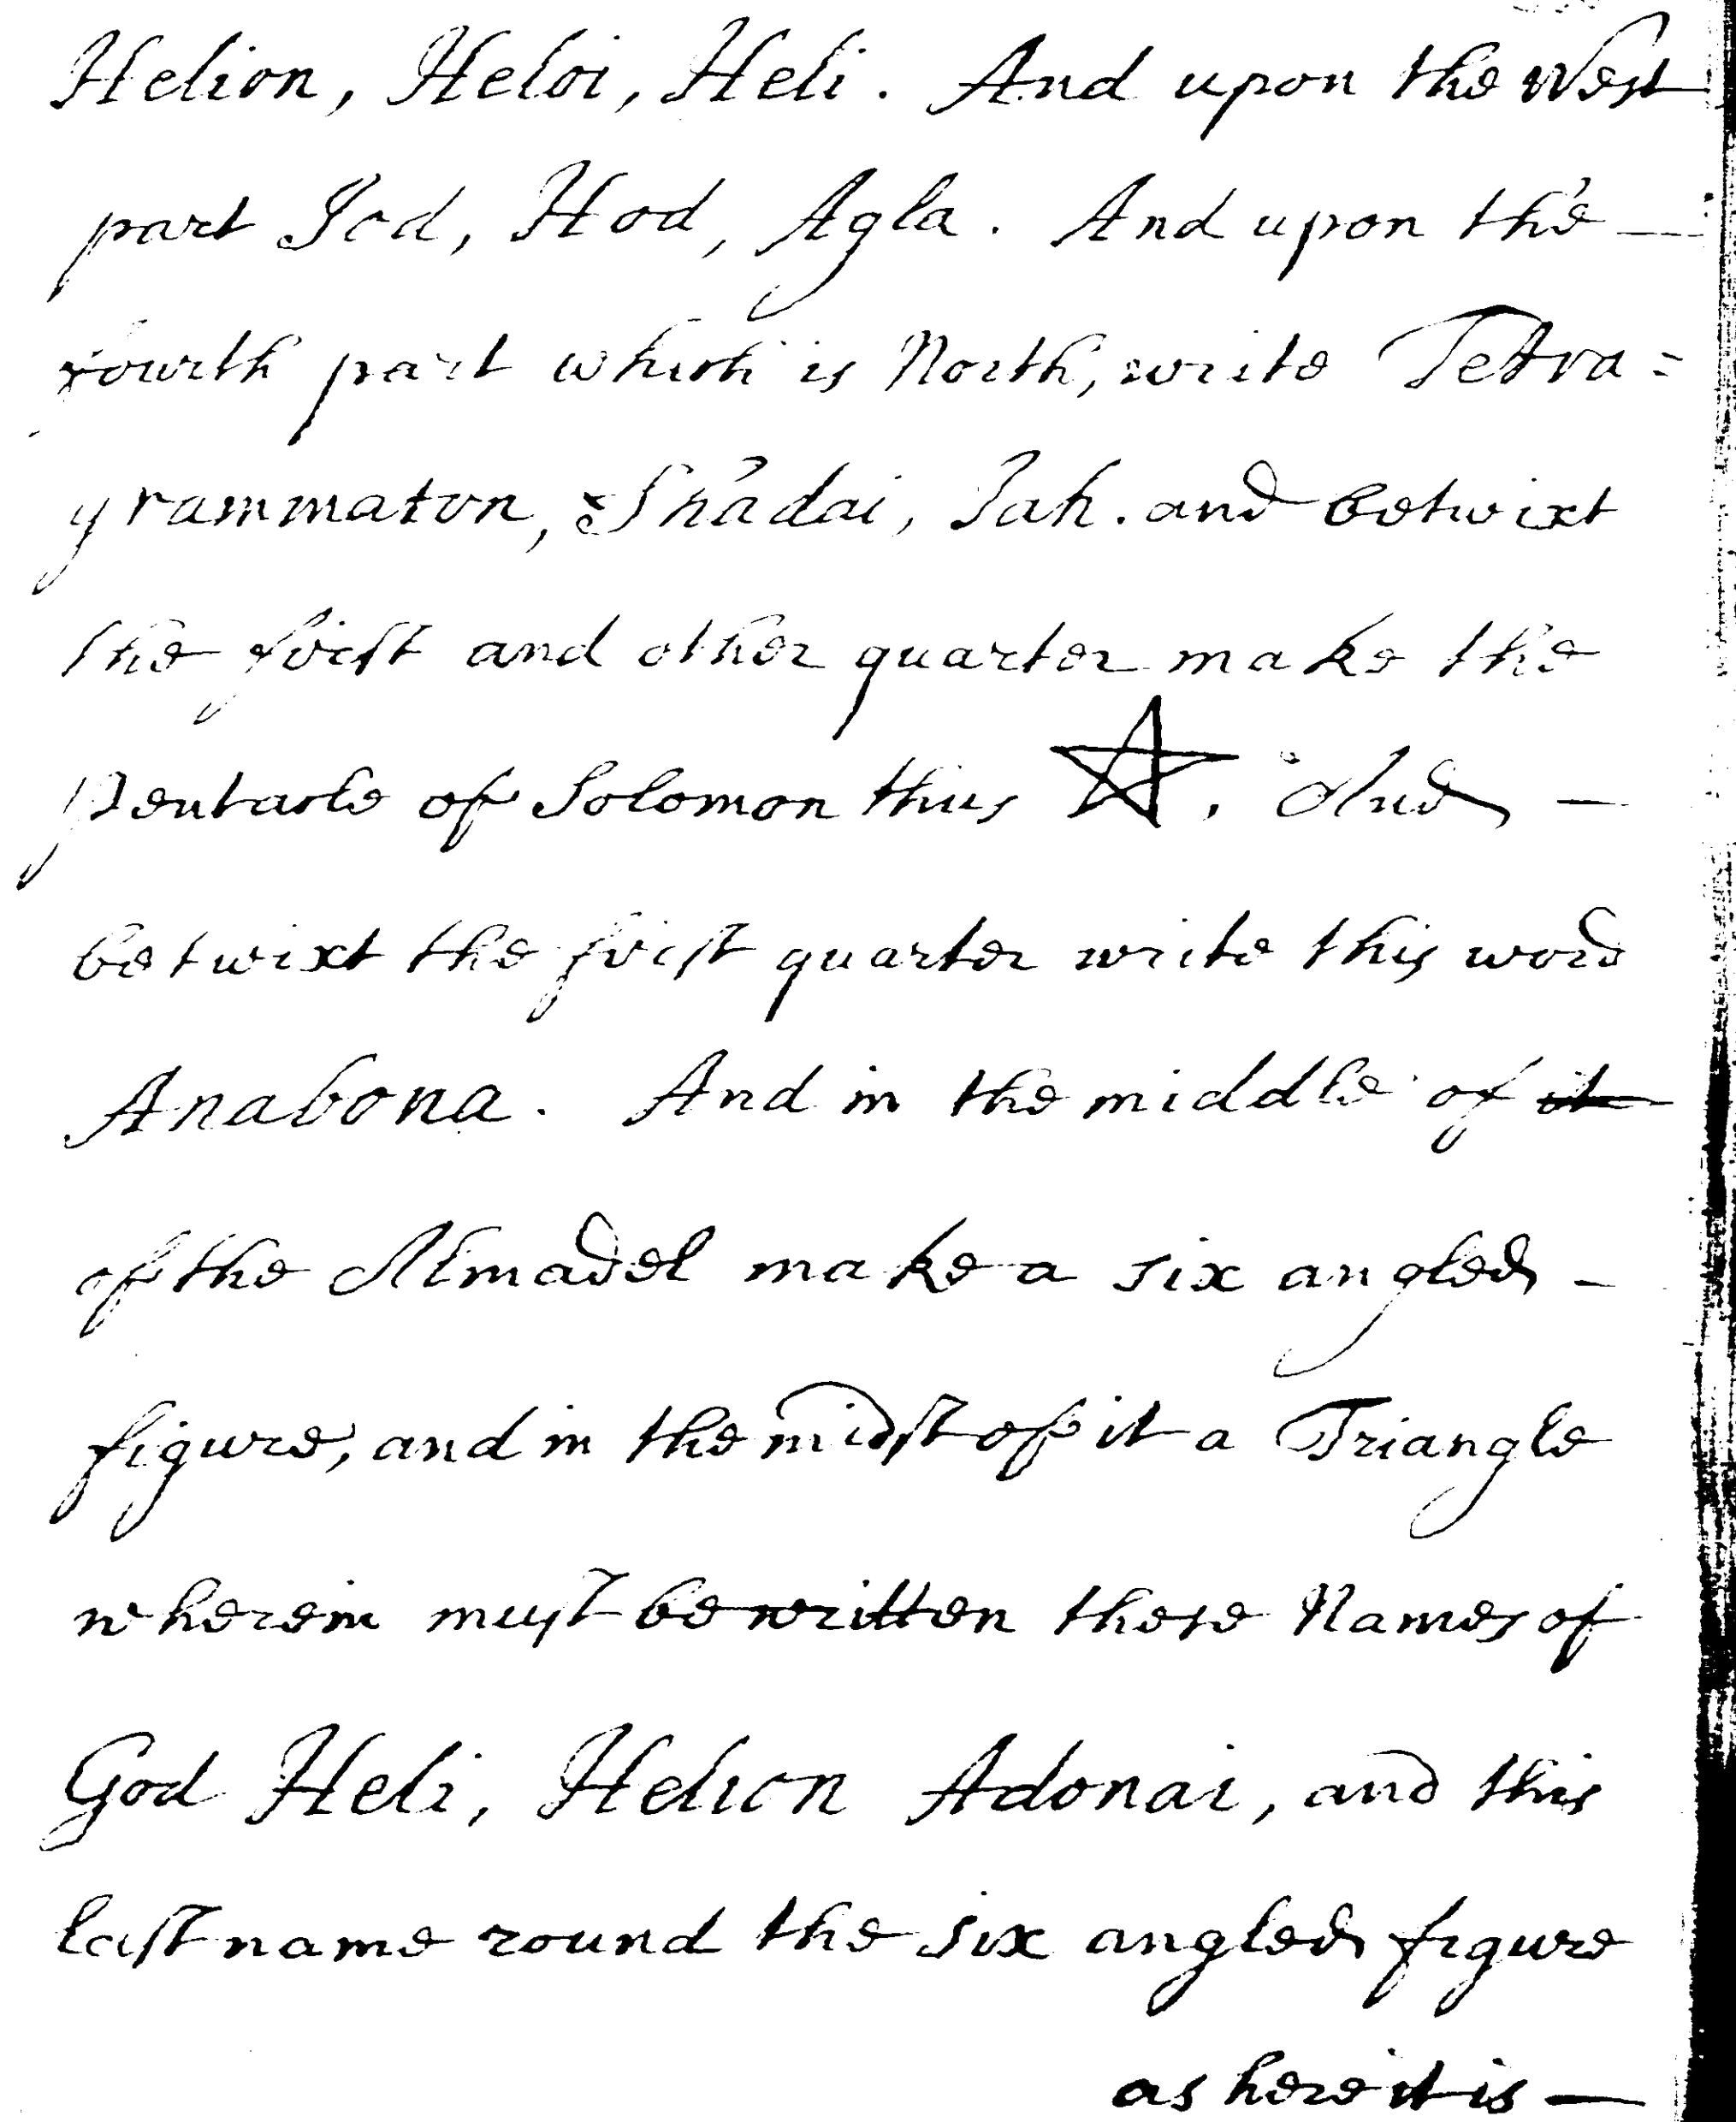 Helion, Heloi, Heli. And upon the West
part Jod, Hod, Agla. And upon the —
fourth part which is North, write Tetra=
grammaton, Shadai, Jah. and betwixt
the first and other quarter make the
Pentacle of Solomon thus ⛤. And —
betwixt the first quarter write this word
Anabona. And in the middle of it
of the Almadel make a six angled —
figure, and in the midst of it a Triangle
wherein must be written these Names of
God Heli, Helion Adonai, and this
last name round the six angled figure
as here it is —